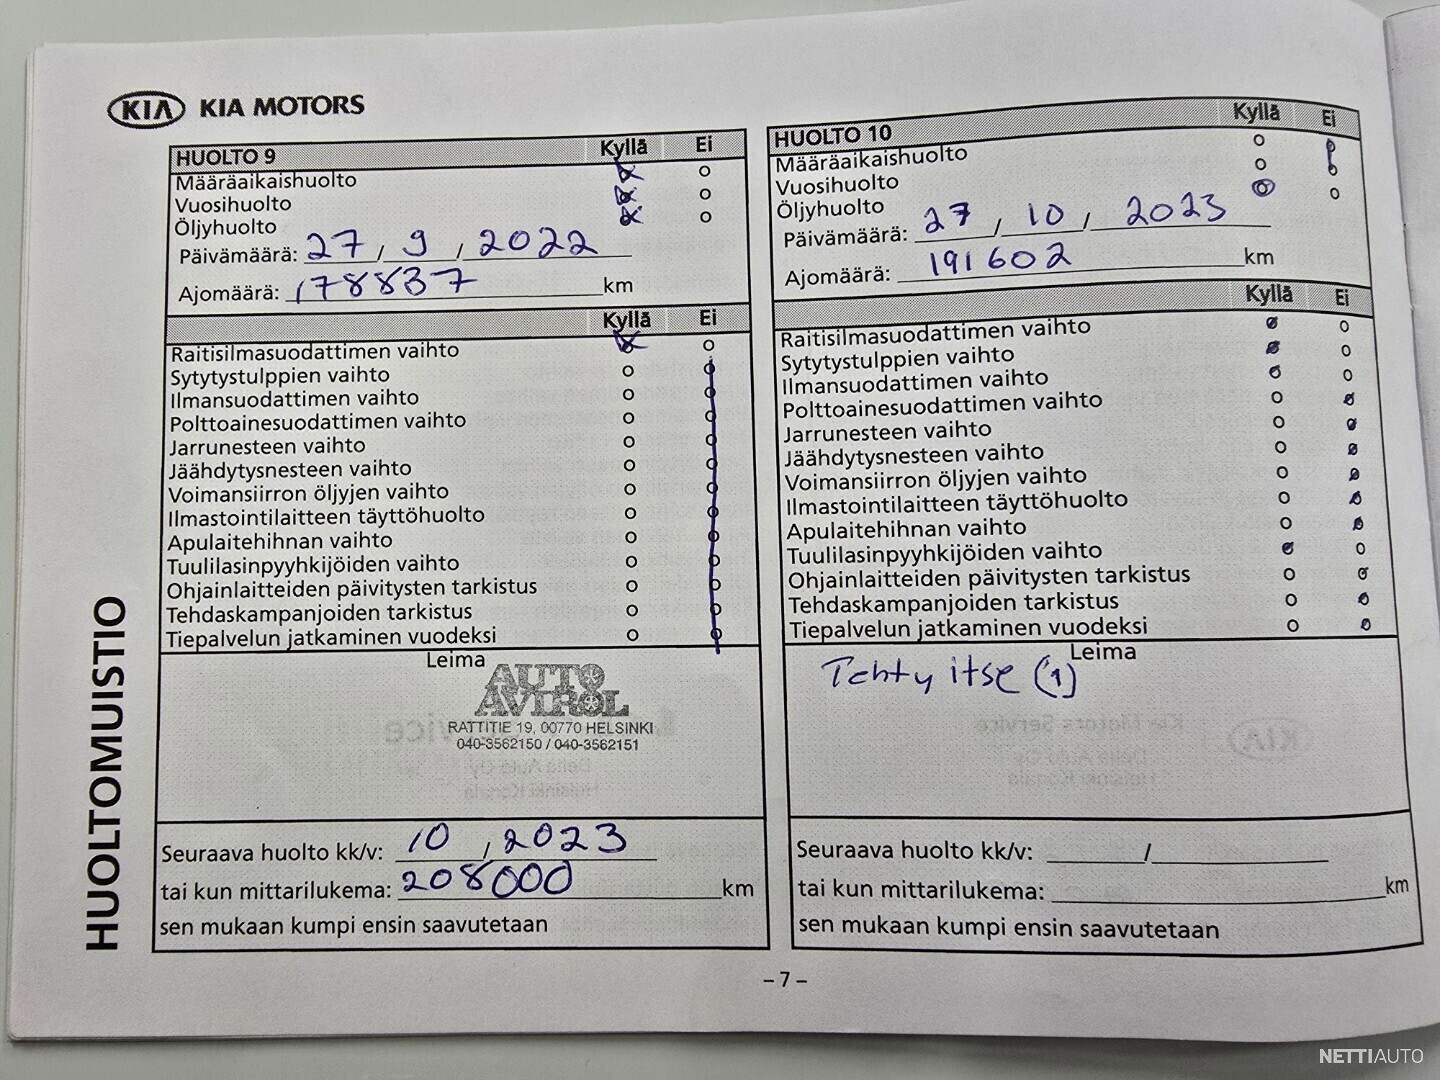 KIA KIA MOTORS
HUOLTO 9 Kyllä Ei
Määräaikaishuolto
Vuosihuolto
Öljyhuolto
Päivämäärä: 27 / 9 / 2022
Ajomäärä: 178837 km
Kyllä Ei
Raitisilmasuodattimen vaihto
Sytytystulppien vaihto
Ilmansuodattimen vaihto
Polttoainesuodattimen vaihto
Jarrunesteen vaihto
Jäähdytysnesteen vaihto
Voimansiirron öljyjen vaihto
Ilmastointilaitteen täyttöhuolto
Apulaitehihnan vaihto
Tuulilasinpyyhkijöiden vaihto
Ohjainlaitteiden päivitysten tarkistus
Tehdaskampanjoiden tarkistus
Tiepalvelun jatkaminen vuodeksi
Leima
AUTO
AVIROL
RATTITIE 19, 00770 HELSINKI
040-3562150 / 040-3562151
Seuraava huolto kk/v: 10 / 2023
tai kun mittarilukema: 208000 km
sen mukaan kumpi ensin saavutetaan
HUOLTO 10 Kyllä Ei
Määräaikaishuolto
Vuosihuolto
Öljyhuolto
Päivämäärä: 27 / 10 / 2023
Ajomäärä: 191602 km
Kyllä Ei
Raitisilmasuodattimen vaihto
Sytytystulppien vaihto
Ilmansuodattimen vaihto
Polttoainesuodattimen vaihto
Jarrunesteen vaihto
Jäähdytysnesteen vaihto
Voimansiirron öljyjen vaihto
Ilmastointilaitteen täyttöhuolto
Apulaitehihnan vaihto
Tuulilasinpyyhkijöiden vaihto
Ohjainlaitteiden päivitysten tarkistus
Tehdaskampanjoiden tarkistus
Tiepalvelun jatkaminen vuodeksi
Leima
Tehty itse (1)
Seuraava huolto kk/v: /
tai kun mittarilukema: km
sen mukaan kumpi ensin saavutetaan
HUOLTOMUISTIO
– 7 –
NETTIAUTO